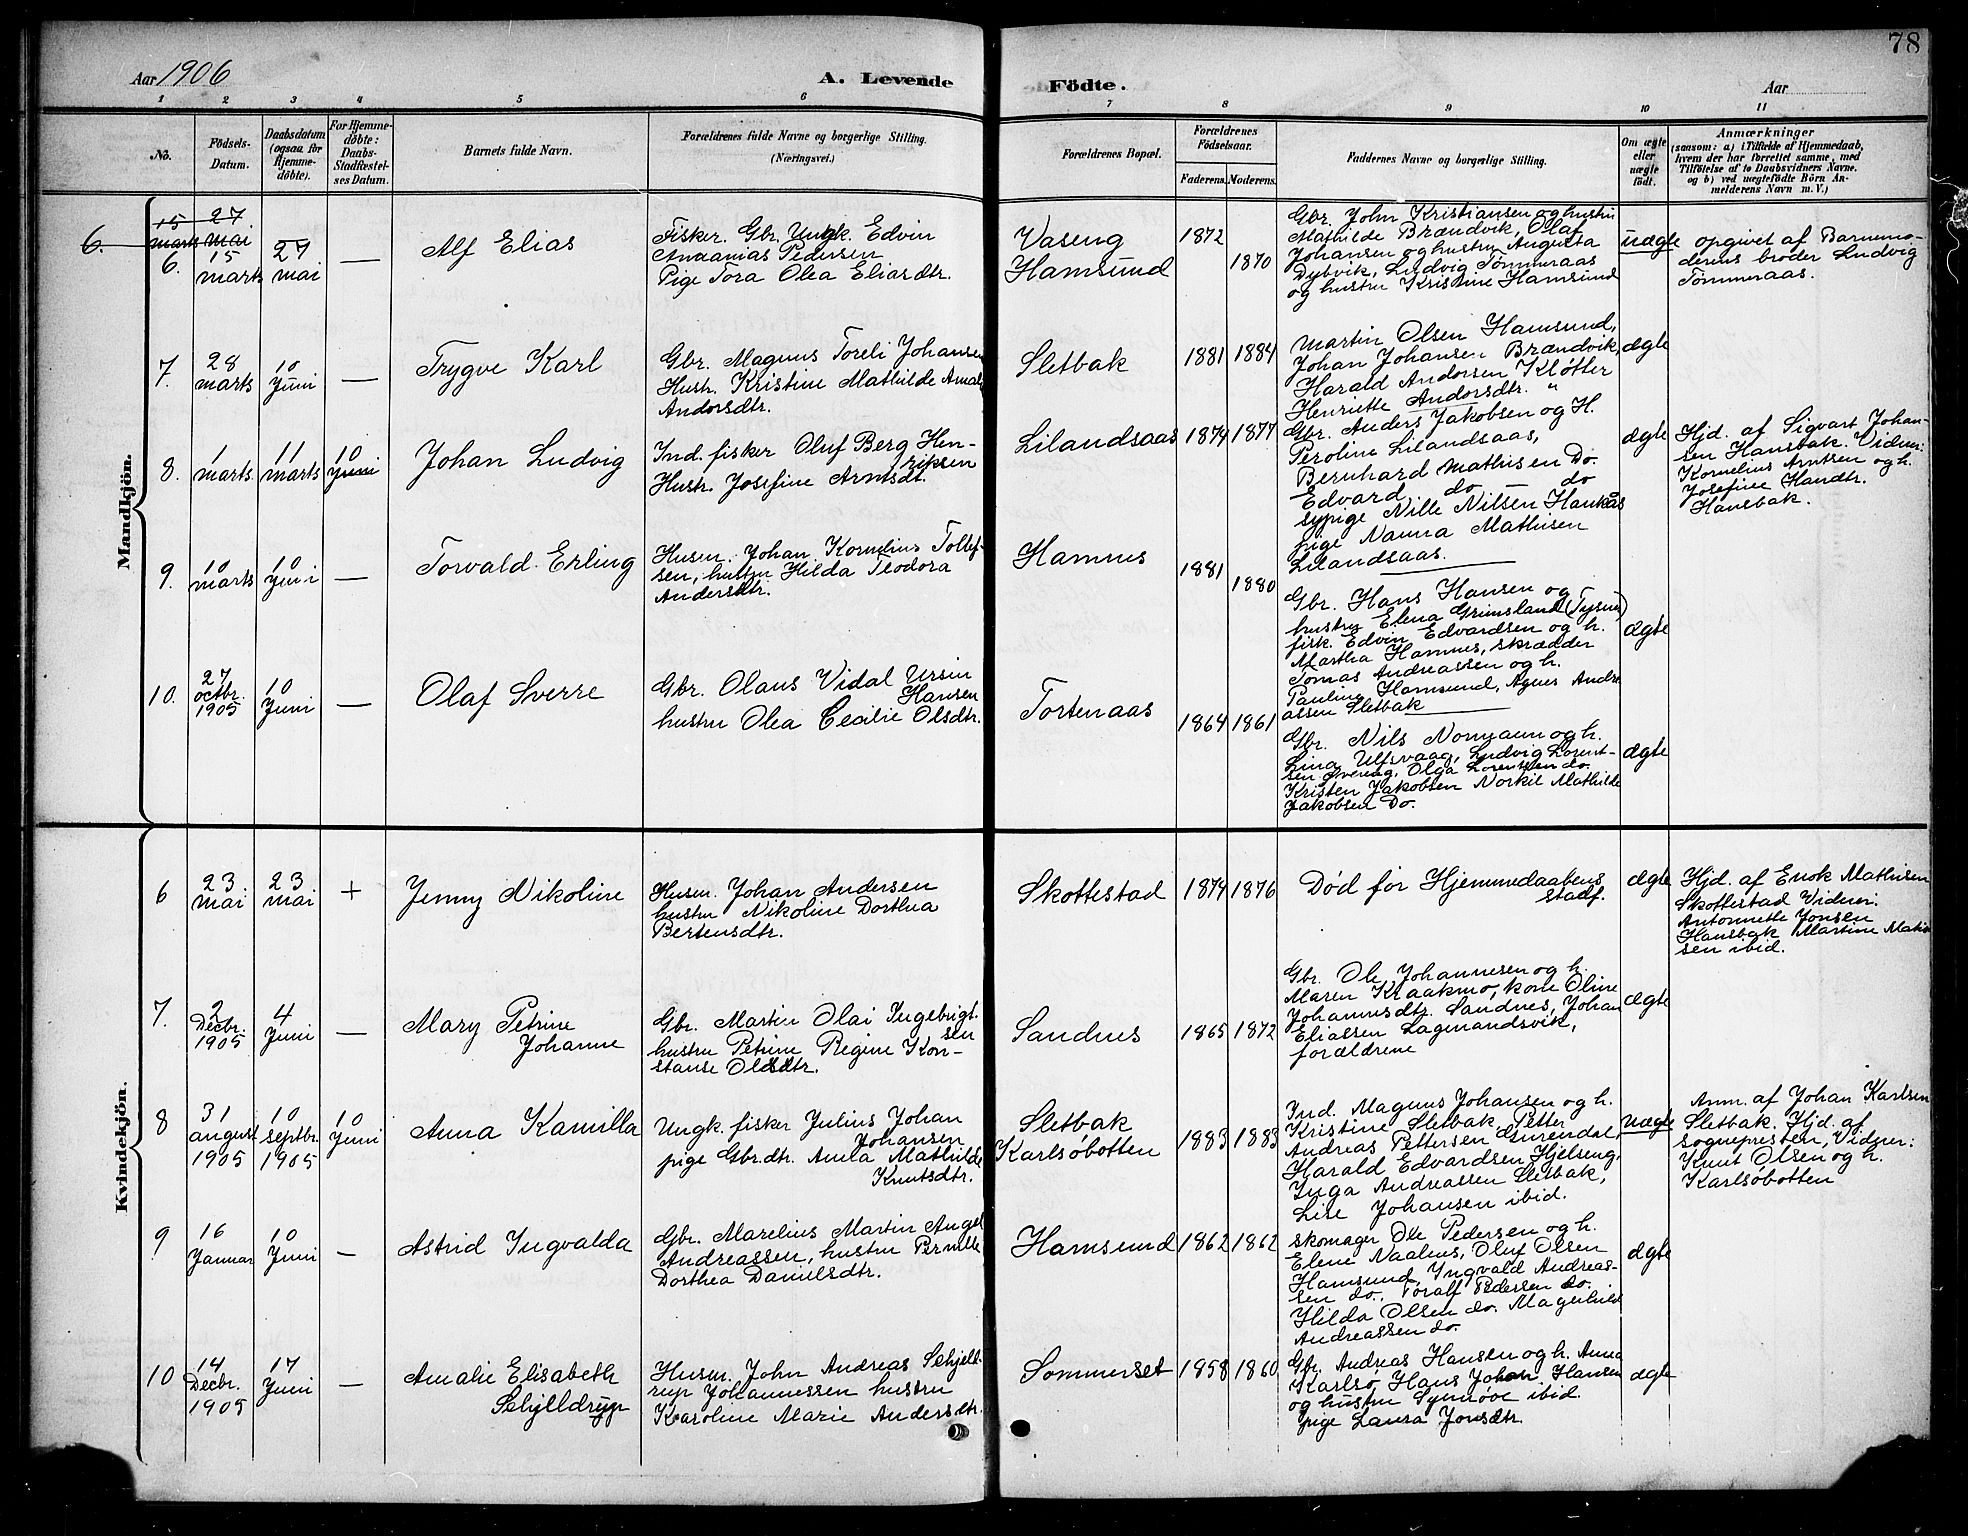 78
Aar 1906
A. Levende
Födte.
Aar
1 2 3 4 5 6 7 8 9 10 11
No.
Födsels-
Datum.
Daabsdatum
(ogsaa for
Hjemme-
döbte).
For Hjemme-
döbte:
Daabs-
Stadfæstel-
ses Datum.
Barnets fulde Navn.
Forældrenes fulde Navne og borgerlige Stilling.
(Næringsvei.)
Forældrenes Bopæl.
Forældrenes
Födselsaar.
Faderens. Moderens.
Faddernes Navne og borgerlige Stilling.
Om ægte
eller
uægte
født.
Anmærkninger
(saasom: a) i Tilfælde af Hjemmedaab,
hvem der har forrettet samme, med
Tilföielse af to Daabsvidners Navne,
og b) ved uægtefödte Börn An-
melderens Navn m. V.)
Mandkjön.
6.
15 marts
27 mai
6.
15
marts
27
mai
—
Alf Elias
Fisker. Gbr. Ungk. Edvin
Ananias Pedersen
Pige Tora Olea Eliasdtr.
Vaseng
Hamsund
1872
1870
Gbr. John Kristiansen og hustru
Mathilde Brændvik, Olaf
Johansen og hustru Augusta
Dybvik, Ludvig Tømmeraas
og hustru Kristine Hamsund
uægte
opgivet af Barnemo-
derens broder Ludvig
Tømmeraas.
7.
28
marts
10
Juni
—
Trygve Karl
Gbr. Magnus Toreli Johansen
Hustr. Kristine Mathilde
Andorsdtr.
Sletbak
1881 1884
Martin Olsen Hamsund,
Johan Johansen Brændvik,
Harald Andorsen Kløtter
Henriette Andorsdtr. "
ægte
8.
1
marts
11
marts
10
Juni
Johan Ludvig
Ind. fisker Oluf Berg Hen-
riksen
Hustr. Josefine Arntsdt.
Lilandsaas
1874 1877
Gbr. Anders Jakobsen og H.
Peroline Lilandsaas,
Bernhard Mathisen Do.
Edvard do — do
sypige Nille Nilsen Haukås
pige Nanna Mathisen
Lilandsaas.
ægte
Hjd. af Sigvart Johan-
sen Hansbak. Vidner:
Kornelius Arntsen og h.
Josefine Handtr.
Hansbak.
9.
10
marts
10
Juni
—
Torvald Erling
Husm. Johan Kornelius Tollef-
sen, hustru Hilda Teodora
Andersdtr.
Hamnes
1881
1880
Gbr. Hans Hansen og
hustru Elena Grimsland (Tysnes)
fisk. Edvin Edvardsen og h.
Martha Hamnes, skrædder
Tomas Andreassen og h.
Pauline Hamsund, Agnes Andre
assen Sletbak
ægte
10.
27
octbr.
1905
10
Juni
—
Olaf Sverre
Gbr. Olaus Vidal Ursin
Hansen
hustru Olea Cecilie Olsdtr.
Tortenaas
1864 1861
Gbr. Nils Normann og h.
Lina Ulfsvaag, Ludvig Lorent-
sen, Olga Lorentsen do.
Kristen Jakobsen Norkil Mathilde
Jakobsen Do.
ægte
Kvindekjön.
6
23
mai
23
mai
+
Jenny Nikoline
Husm. Johan Andersen
hustru Nikoline Dorthea
Bertensdtr.
Skottestad
1874 1876
Død før Hjemmedaabens
stadf.
ægte
Hjd. af Enok Mathisen
Skottestad Vidner:
Antonnette Jonsen
Hansbak Martine Mathi
sen ibid.
7.
2
Decbr.
1905
4
Juni
—
Mary Petrine
Johanne
Gbr. Martin Olai Ingebrigt-
sen
hustru Petrine Regine Kon-
stanse Olesdtr.
Sandnes
1865 1872
Gbr. Ole Johannesen og h.
Maren Kraakmo, kone Oline
Johannesdtr. Sandnes, Johan
Eliassen Lagmandsvik,
forældrene
ægte
8
31
august
1905
10
septbr.
1905
10
Juni
Anna Kamilla
Ungk. fisker Julius Johan
Johansen
pige Gbr.dtr. Anna Mathilde
Knutsdtr.
Sletbak
Karlsøbotten
1883 1883
Ind. Magnus Johansen og h.
Kristine Sletbak, Petter
Andreas Pettersen Gurendal,
Harald Edvardsen Hjelseng,
Inga Andreassen Sletbak,
Lise Johansen ibid.
uægte
Anm. af Johan Karlsen
Sletbak. Hjd. af
sognepresten, Vidner:
Knut Olsen og h.
Karlsøbotten
9
16
Januar
10
Juni
—
Astrid Ingvalda
Gbr. Marelius Martin Angel
Andreassen, hustru Pernille
Dorthea Danielsdtr.
Hamsund
1862 1862
skomager Ole Pedersen og h.
Elene Naalnes, Oluf Olsen
Hamsund, Yngvald Andreas-
sen do. Toralf Pedersen do.
Hilda Olsen do. Magnhild
Andreassen do.
ægte
10
14
Decbr.
1905
17
Juni
—
Amalie Elisabeth
Schjelldrup
Husm. John Andreas Schjell-
rup Johannessen hustru
Karoline Marie Andersdtr.
Sommerset
1858 1860
Gbr. Andreas Hansen og h. Anna
Karlsø Hans Johan Hansen
og hustru Synnøve ibid.
pige Laura Jonsdtr.
ægte